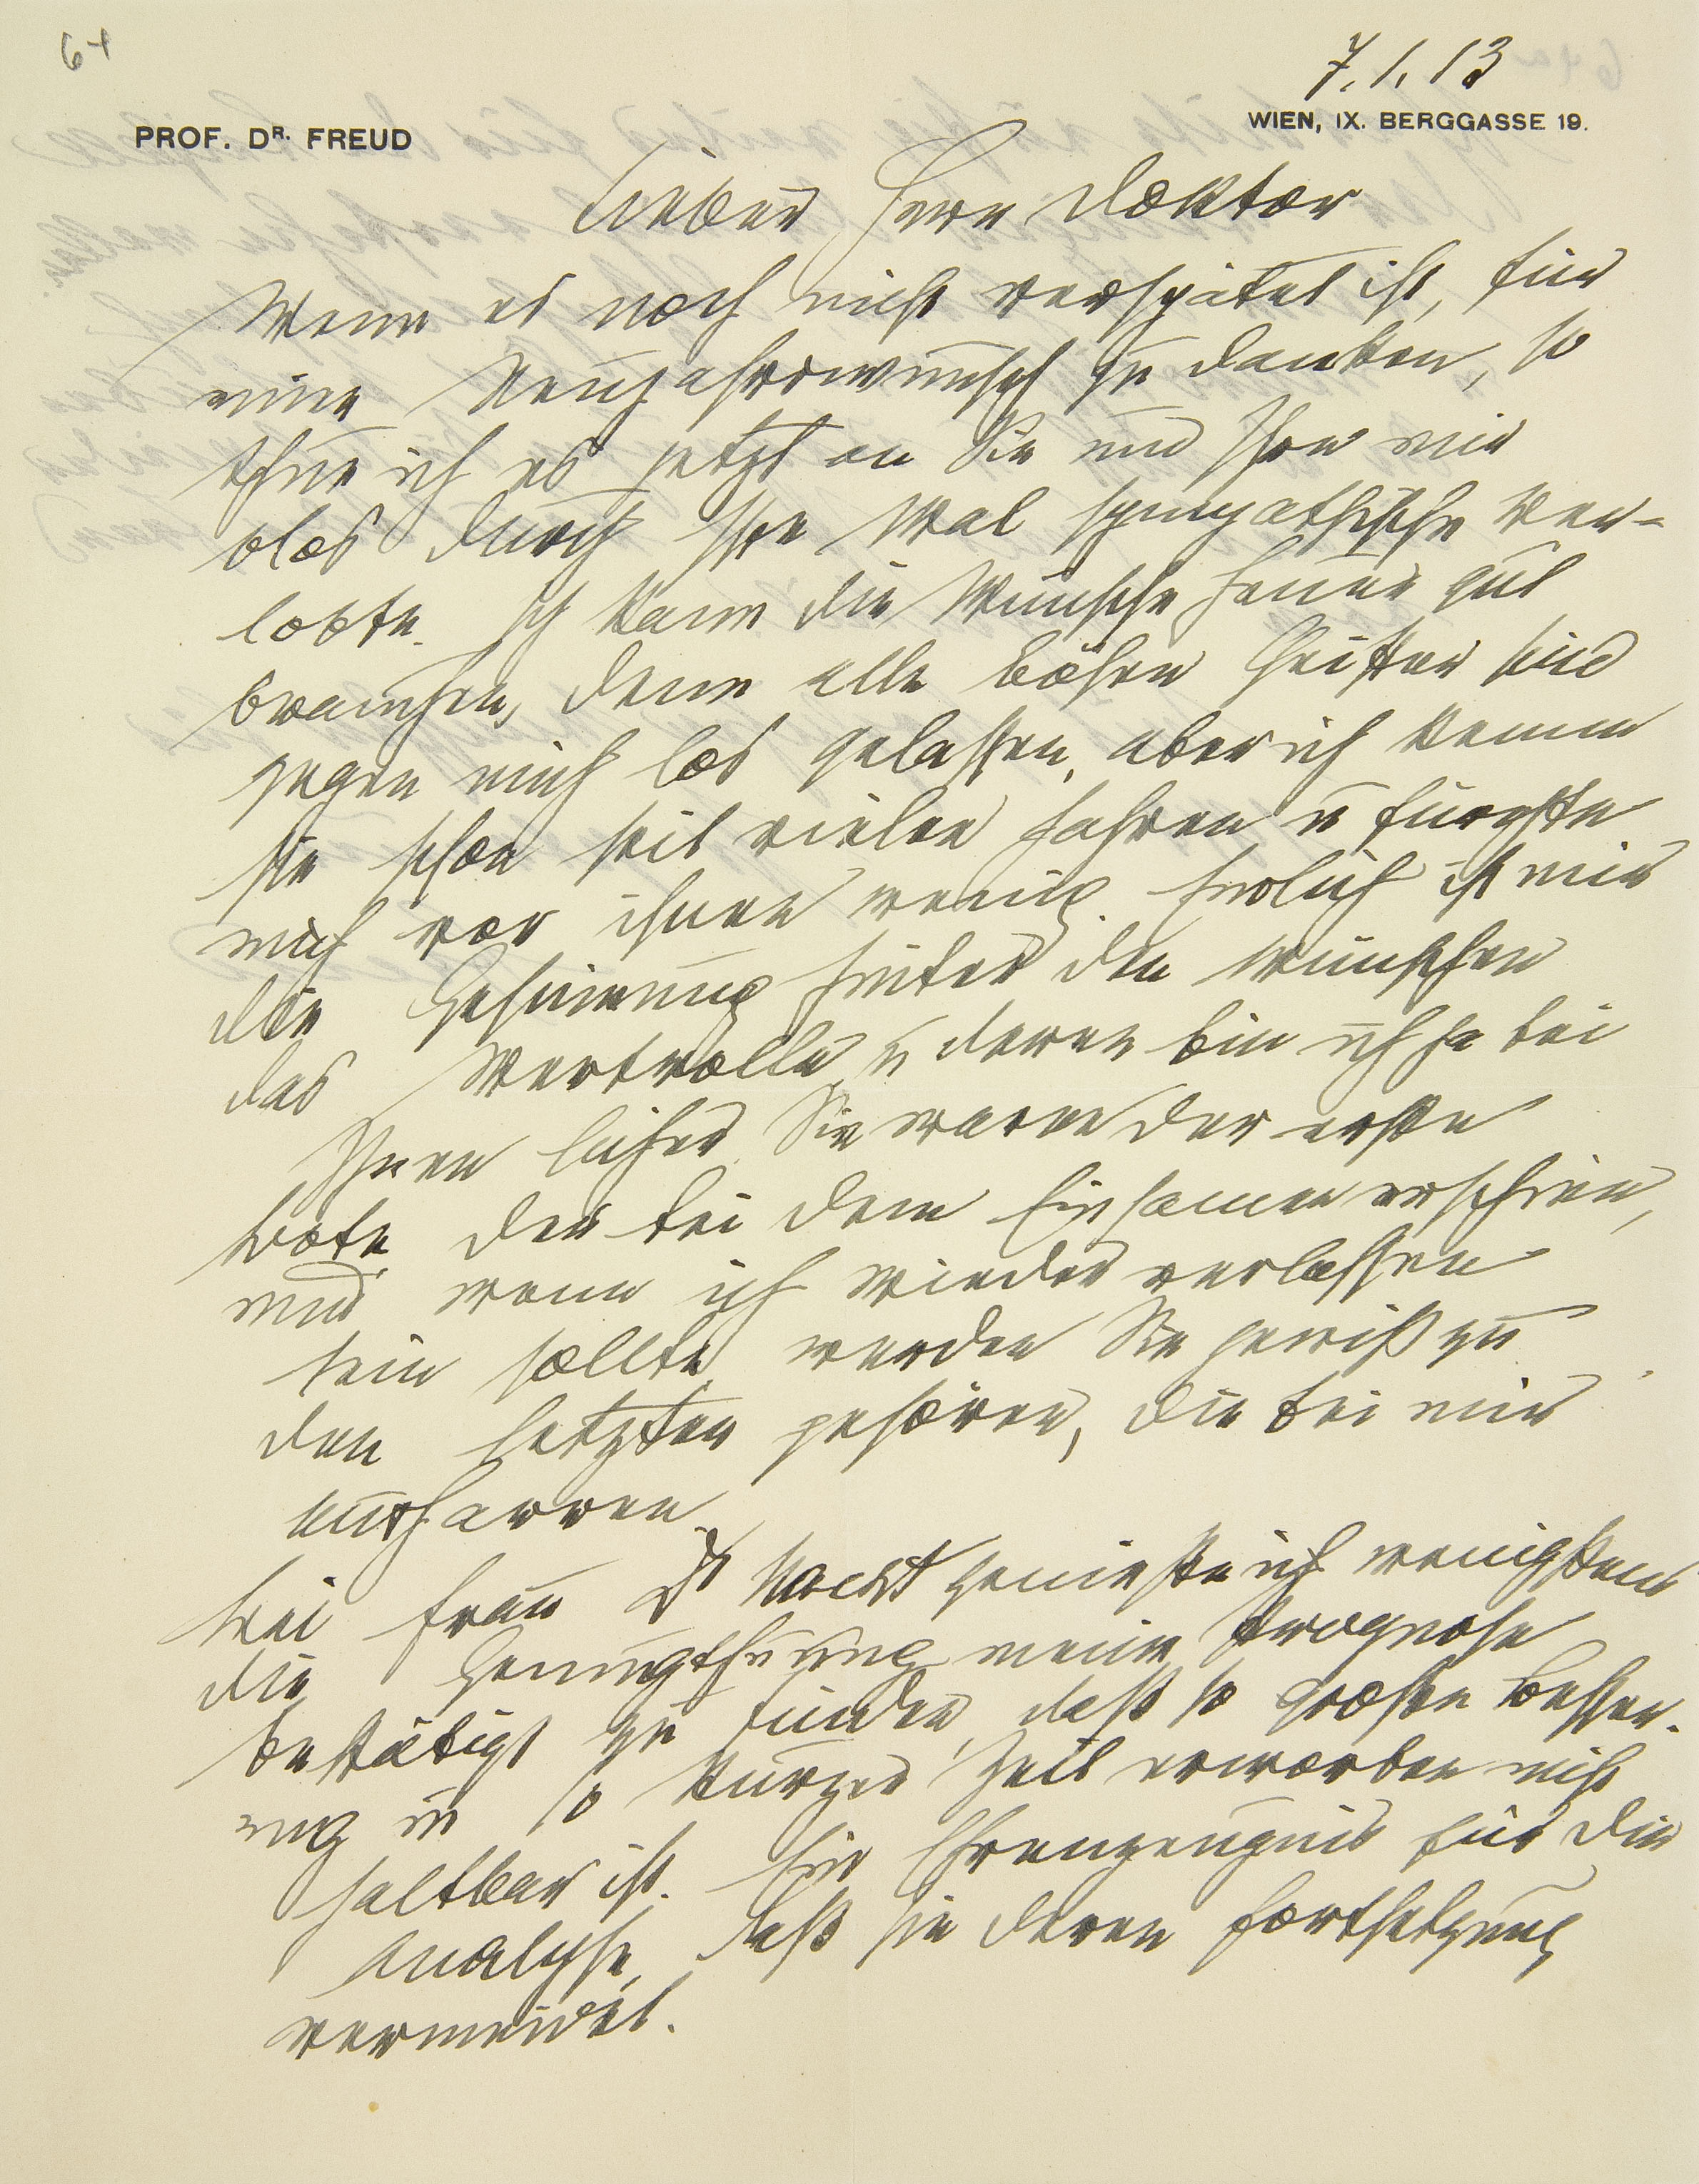 6+
7. 1. 13
PROF. DR. FREUD
WIEN, IX. BERGGASSE 19.
Lieber Herr Doktor
Wenn es noch nicht verspätet ist, für
einen Neujahrswunsch zu danken, so
thue ich es jetzt an Sie und Ihre mir
blos durch Ihre Wal sympathische Ver-
lobte. Ich kann die Wünsche heuer gut
brauchen, denn alle bösen Geister sind
gegen mich los gelassen, aber ich kenne
sie schon seit vielen Jahren u fürchte
mich vor ihnen wenig. Endlich ist mir
die Gesinnung hinter den Wünschen
das Wertvolle u deren bin ich ja bei
Ihnen sicher. Sie waren der erste
Bote, der bei dem Einsamen erschien,
und wenn ich wieder verlassen
sein sollte, werden Sie gewiß zu
den Letzten gehören, die bei mir
ausharren.
Bei Frau Dr genieße ich wenigstens
die Genugthuung meine Prognose
bestätigt zu finden, daß so große Besser-
ung in so kurzer Zeit erworben nicht
haltbar ist. Ein Ehrenzeugnis für die
Analyse, daß sie deren Fortsetzung
vermeidet.